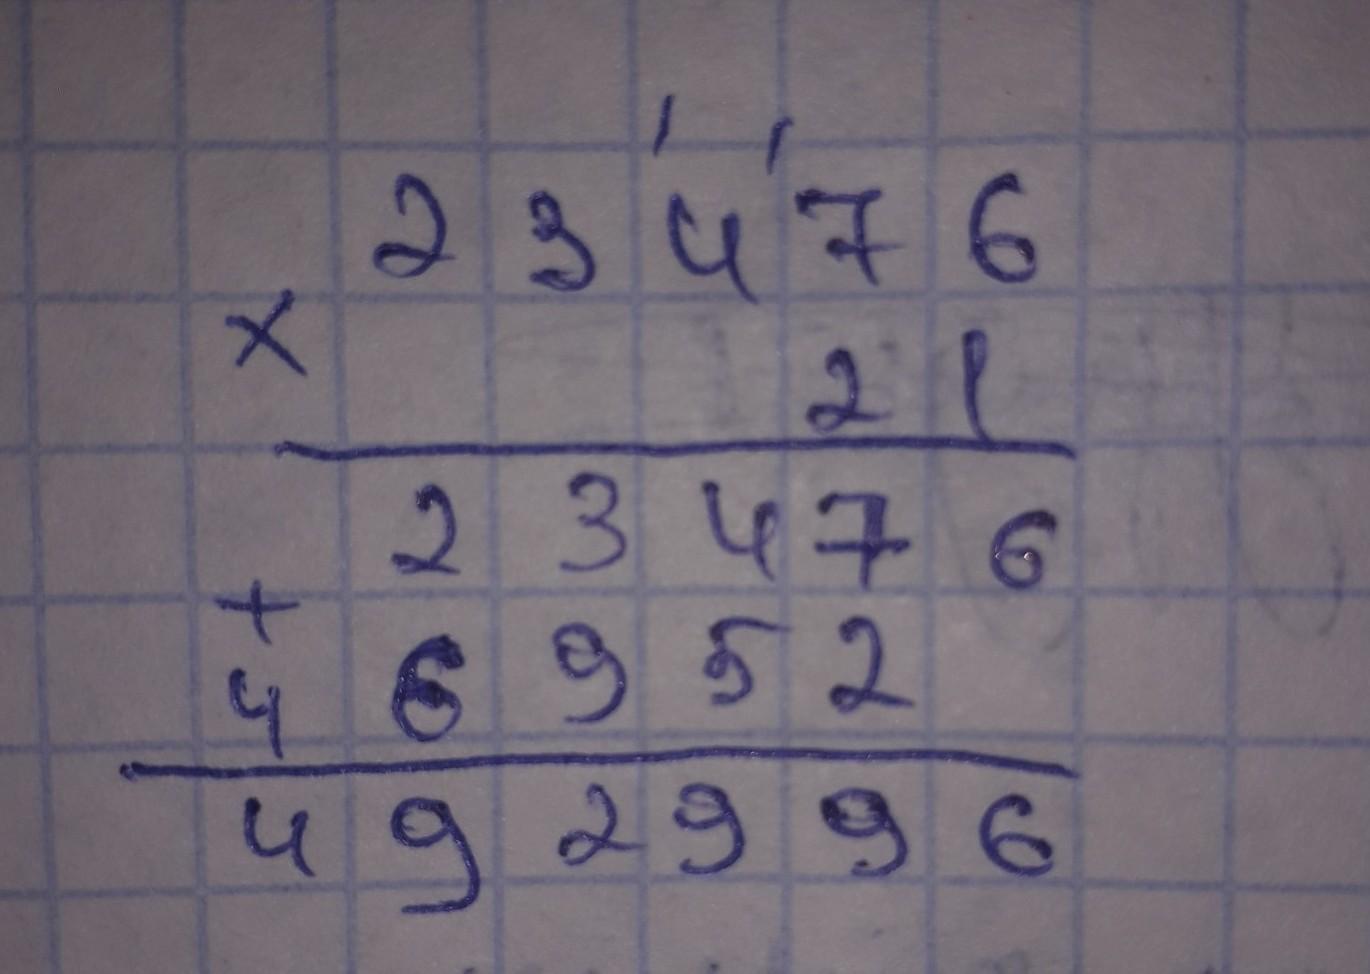 1 1
2 3 4 7 6
×
2 1
2 3 4 7 6
+
4 6 9 5 2
4 9 2 9 9 6